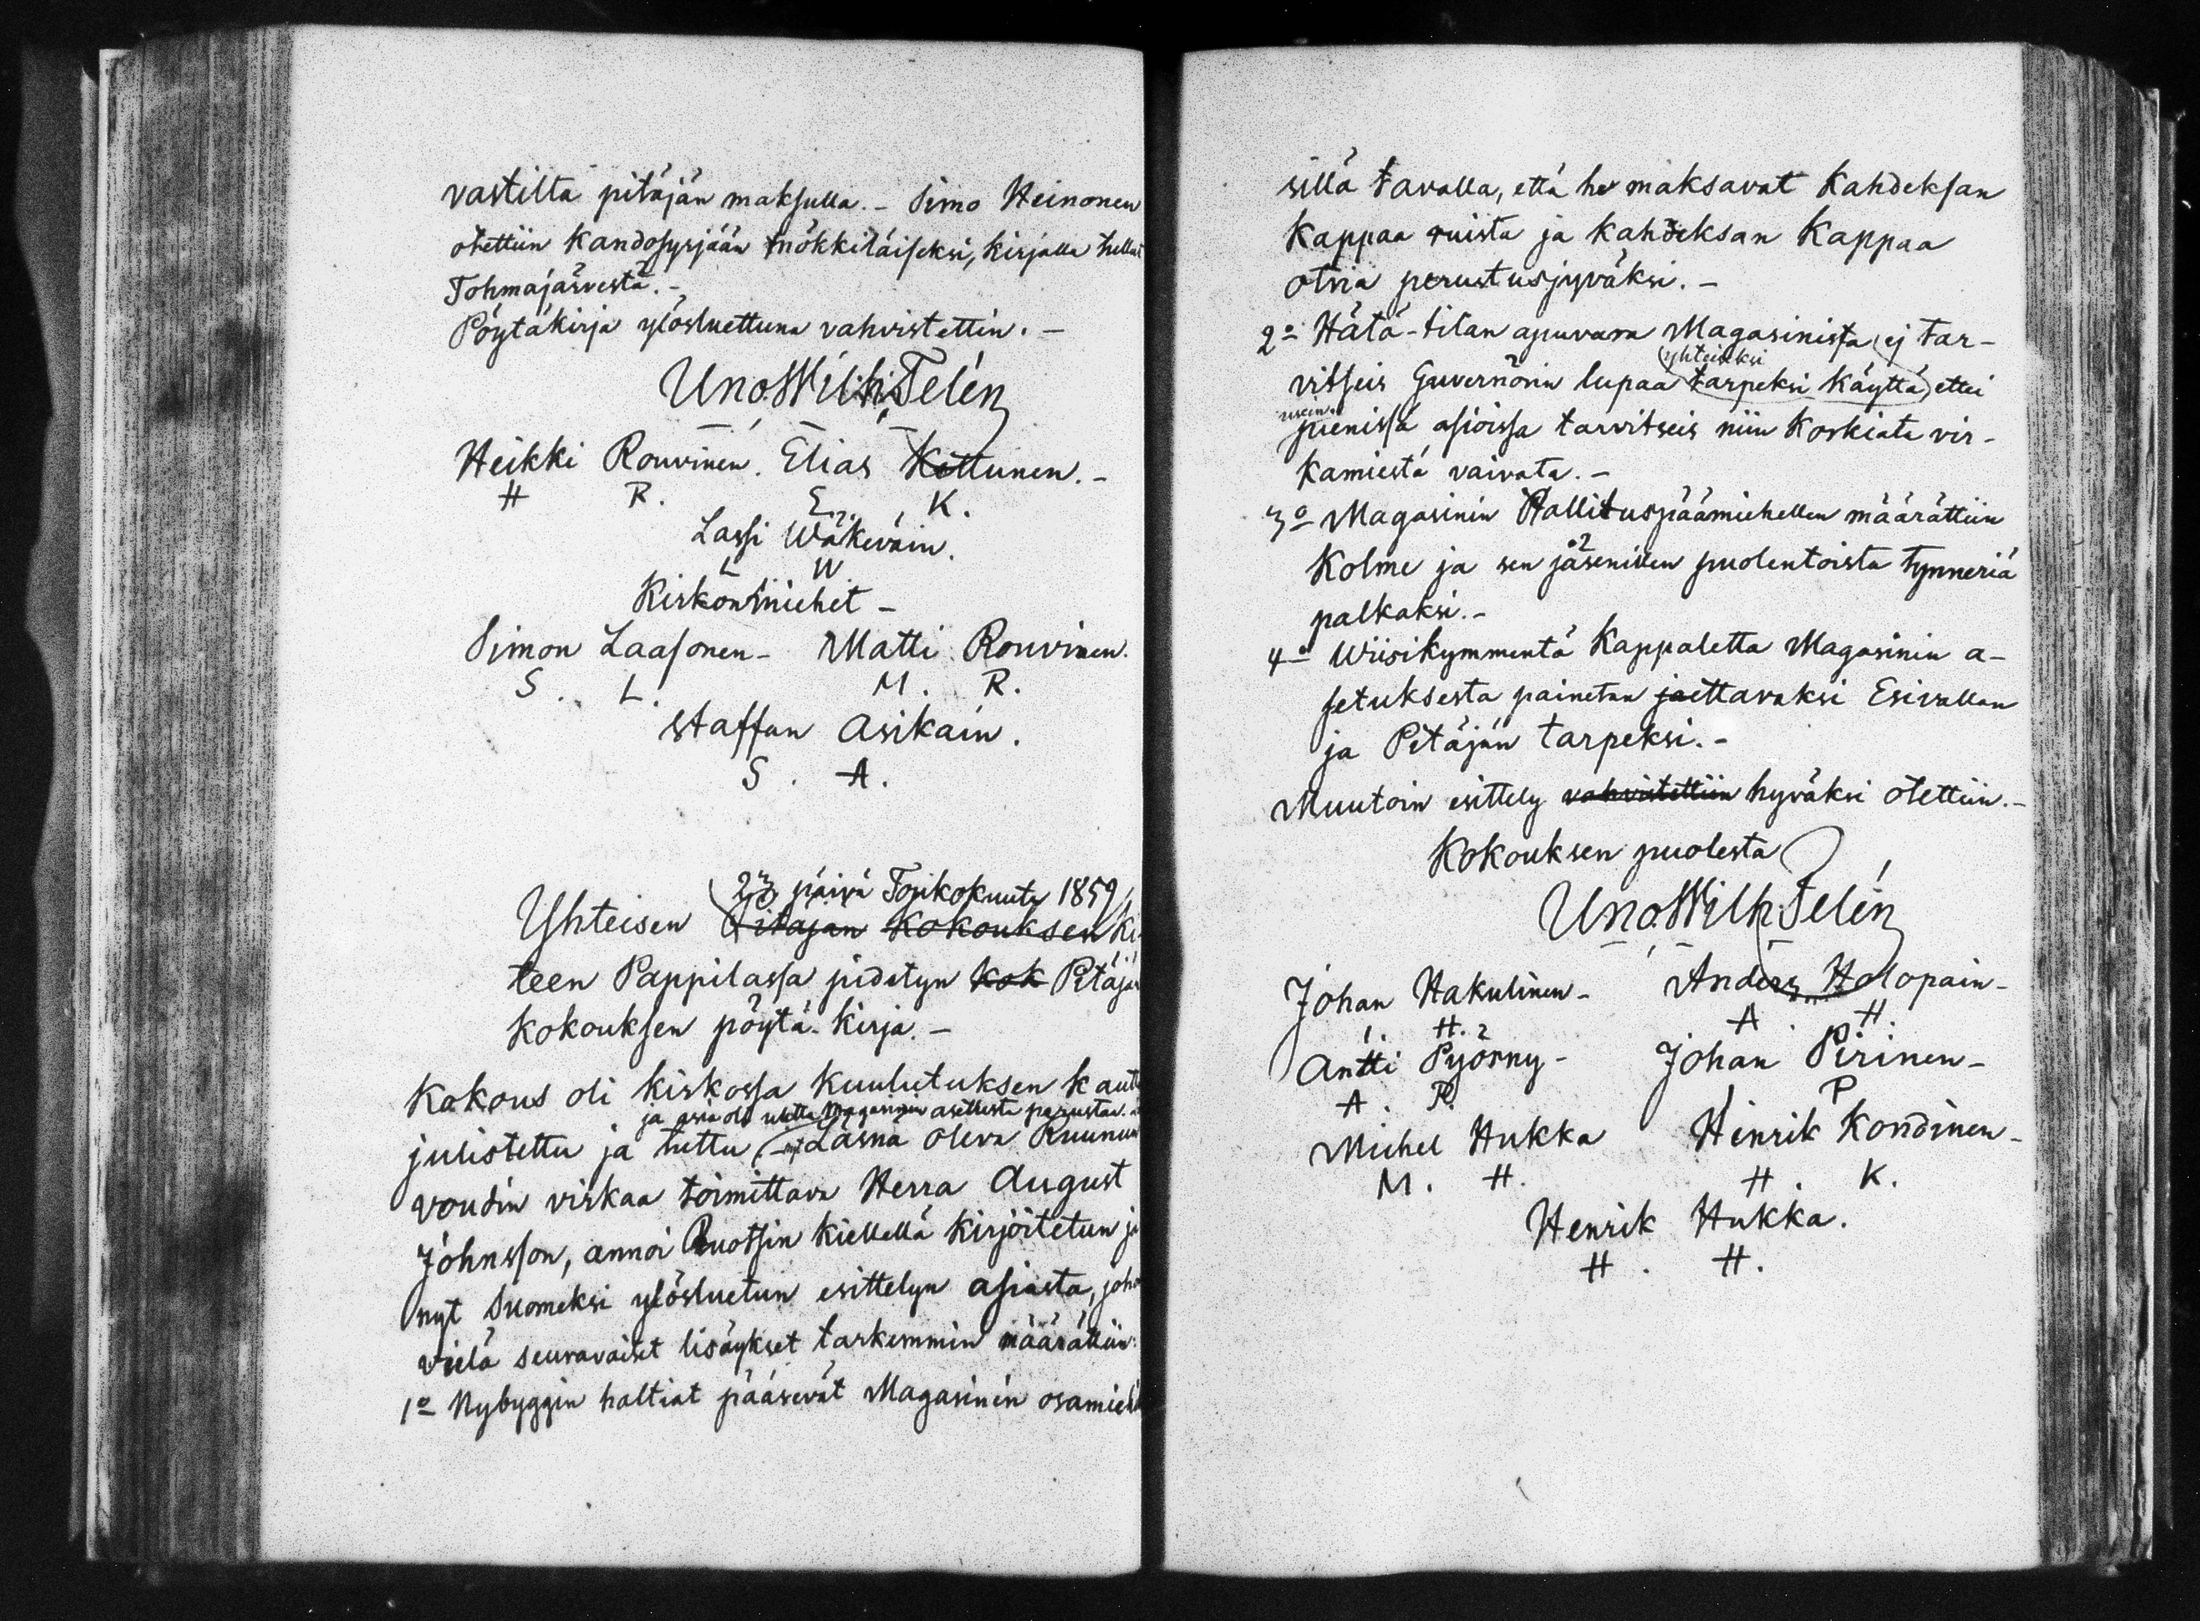 vastilta pitäjän maksulla. - Simo Heinonen
otettiin Kandosyrjään mökkiläiseksi, kirjalla
Tohmajärvestä. -
Pöytäkirja ylösluettuna vahvistettin. -
Uno Wilh. Telén
Heikki Rouvinen. Elias Kettunen. -
H R. E. K.
Lassi Wäkeväin.
L W
Kirkonmiehet -
Simon Laasonen - Matti Rouvinen.
S. L. M. R.
Staffan Asikain.
S. A.
23 päivä Tojikokuuta 1859
Yhteisen Pitäjän Kokouksen Ki-
teen Pappilassa pidetyn Kok Pitäjän
Kokouksen pöytä-kirja. -
Kokous oli kirkossa Kuulutuksen kautta
ja asia oli uutta Magasinin asetusta perustaa
julistettu ja tuttu, - Läsnä oleva Ruunun
voudin virkaa toimittava Herra August
Johnsson, annoi Ruotsin kielellä Kirjoitetun ja
nyt Suomeksi ylösluetun esittelyn asiasta, joho
vielä seuravaiset lisäykset tarkemmin määrättiin:
1o Nybyggin haltiat pääsevät Magasinin osamiehi
sillä tavalla, että he maksavat Kahdeksan
Kappaa ruista ja kahdeksan Kappaa
otria perustusjyväksi. -
2o Hätä-tilan apuvara Magasinissa ej tar-
yhteiseksi
vitseis Guvernörin lupaa tarpeksi Käyttä, ettei
usein
pienissä asioissa tarvitseis niin Korkiata vir-
kamiestä vaivata. -
3o Magasinin Hallituspäämiehellen määrättiin
Kolme ja sen jäsenillen puolentoista tynneriä
palkaksi. -
4o Wiisikymmentä Kappaletta Magasinin a-
setuksesta painetan jaettavaksi Esivallan
ja Pitäjän tarpeksi. -
Muutoin esittely vahvistettiin hyväksi otettiin. -
Kokouksen puolesta
Uno Wilh. Telén
Johan Hakulinen - Anders Holopain -
I. H. A. H.
Antti Pyörny - Johan Pirinen -
A. P. I P
Michel Hukka Henrik Kondinen -
M. H. H. K.
Henrik Hukka.
H. H.